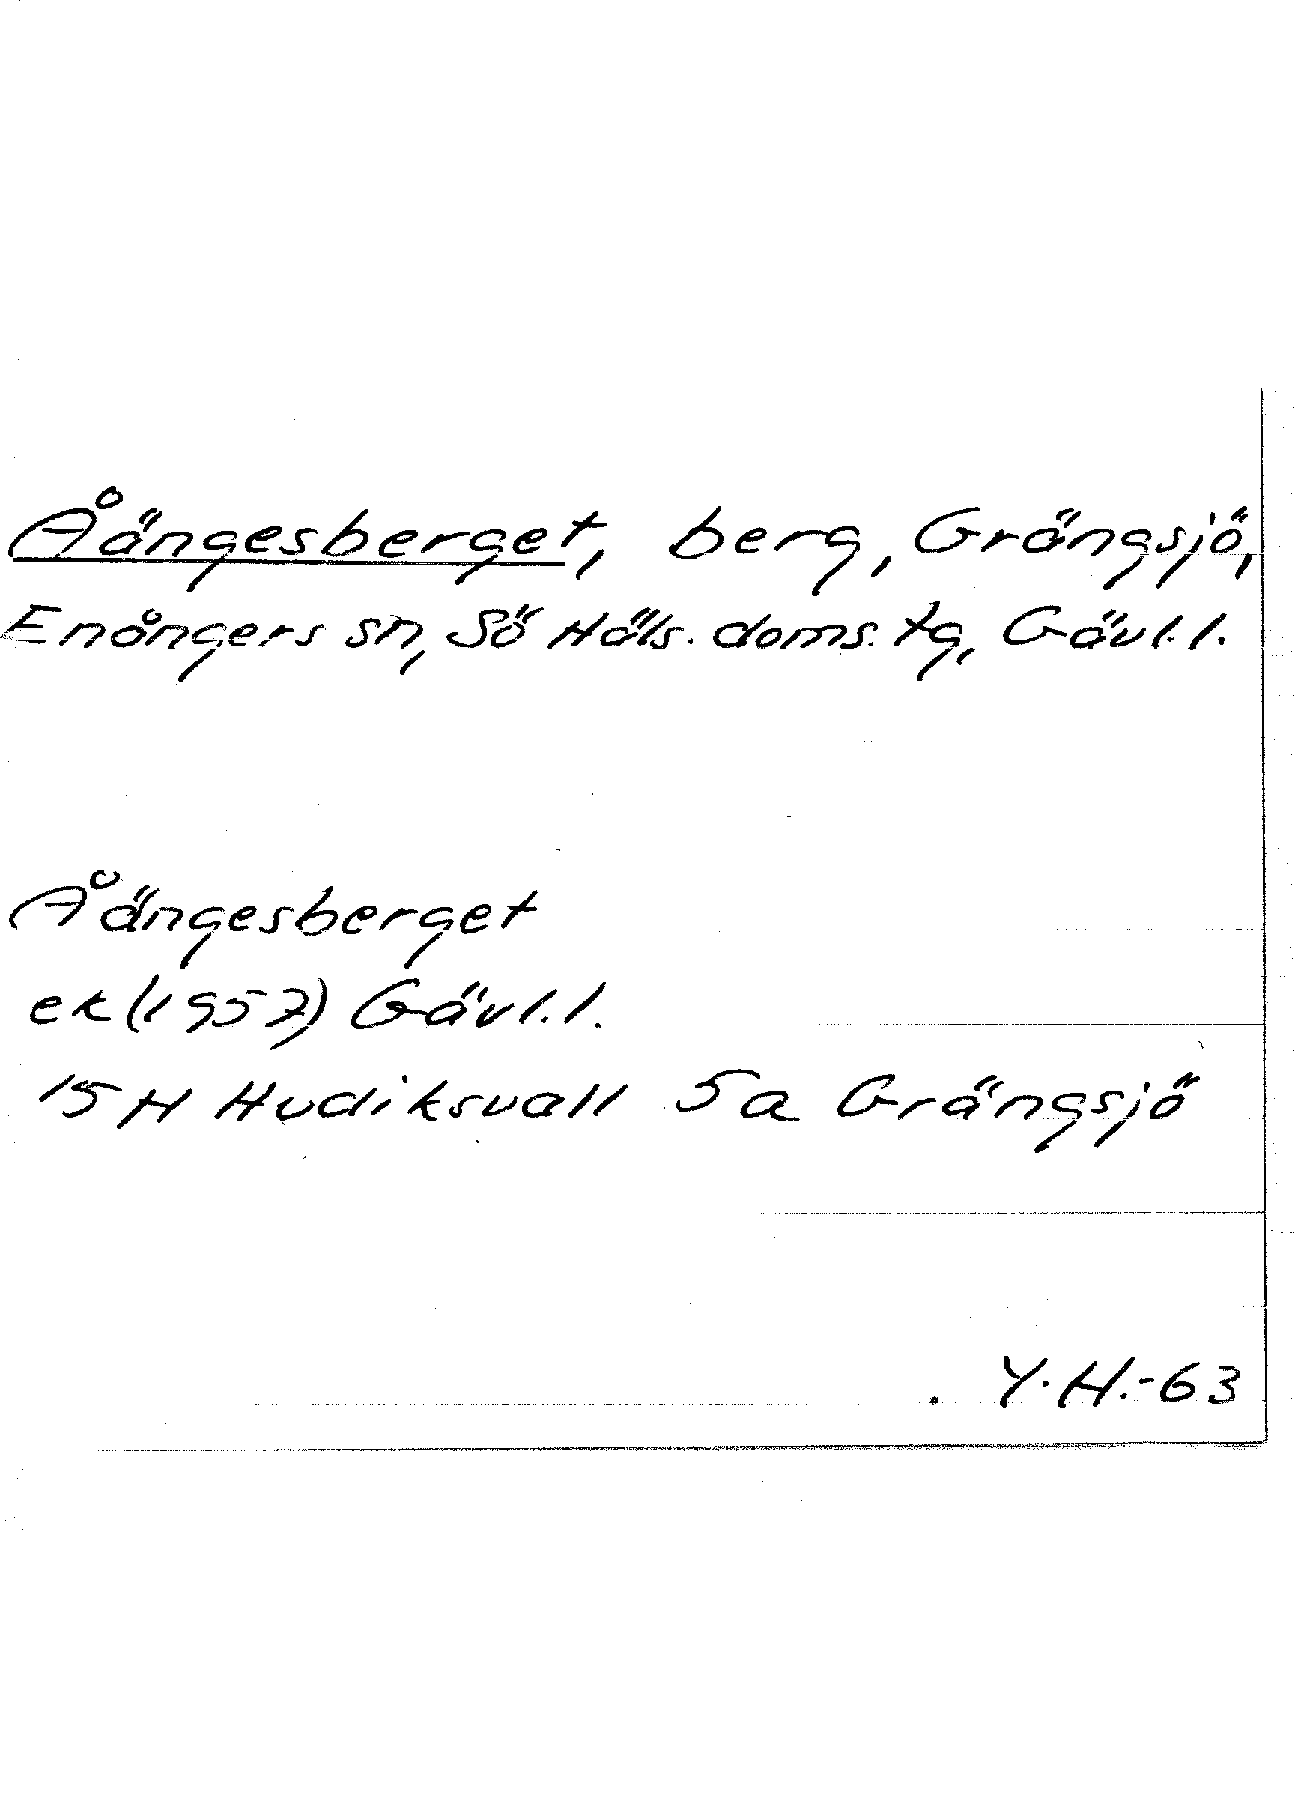 Åängesberget, berg, Grängsjö,
Enångers sn, Sö Häls. doms. tg, Gävl. l.
Åängesberget
ek (1957) Gävl. l.
15 H Hudiksvall 5a Grängsjö
Y.H.-63